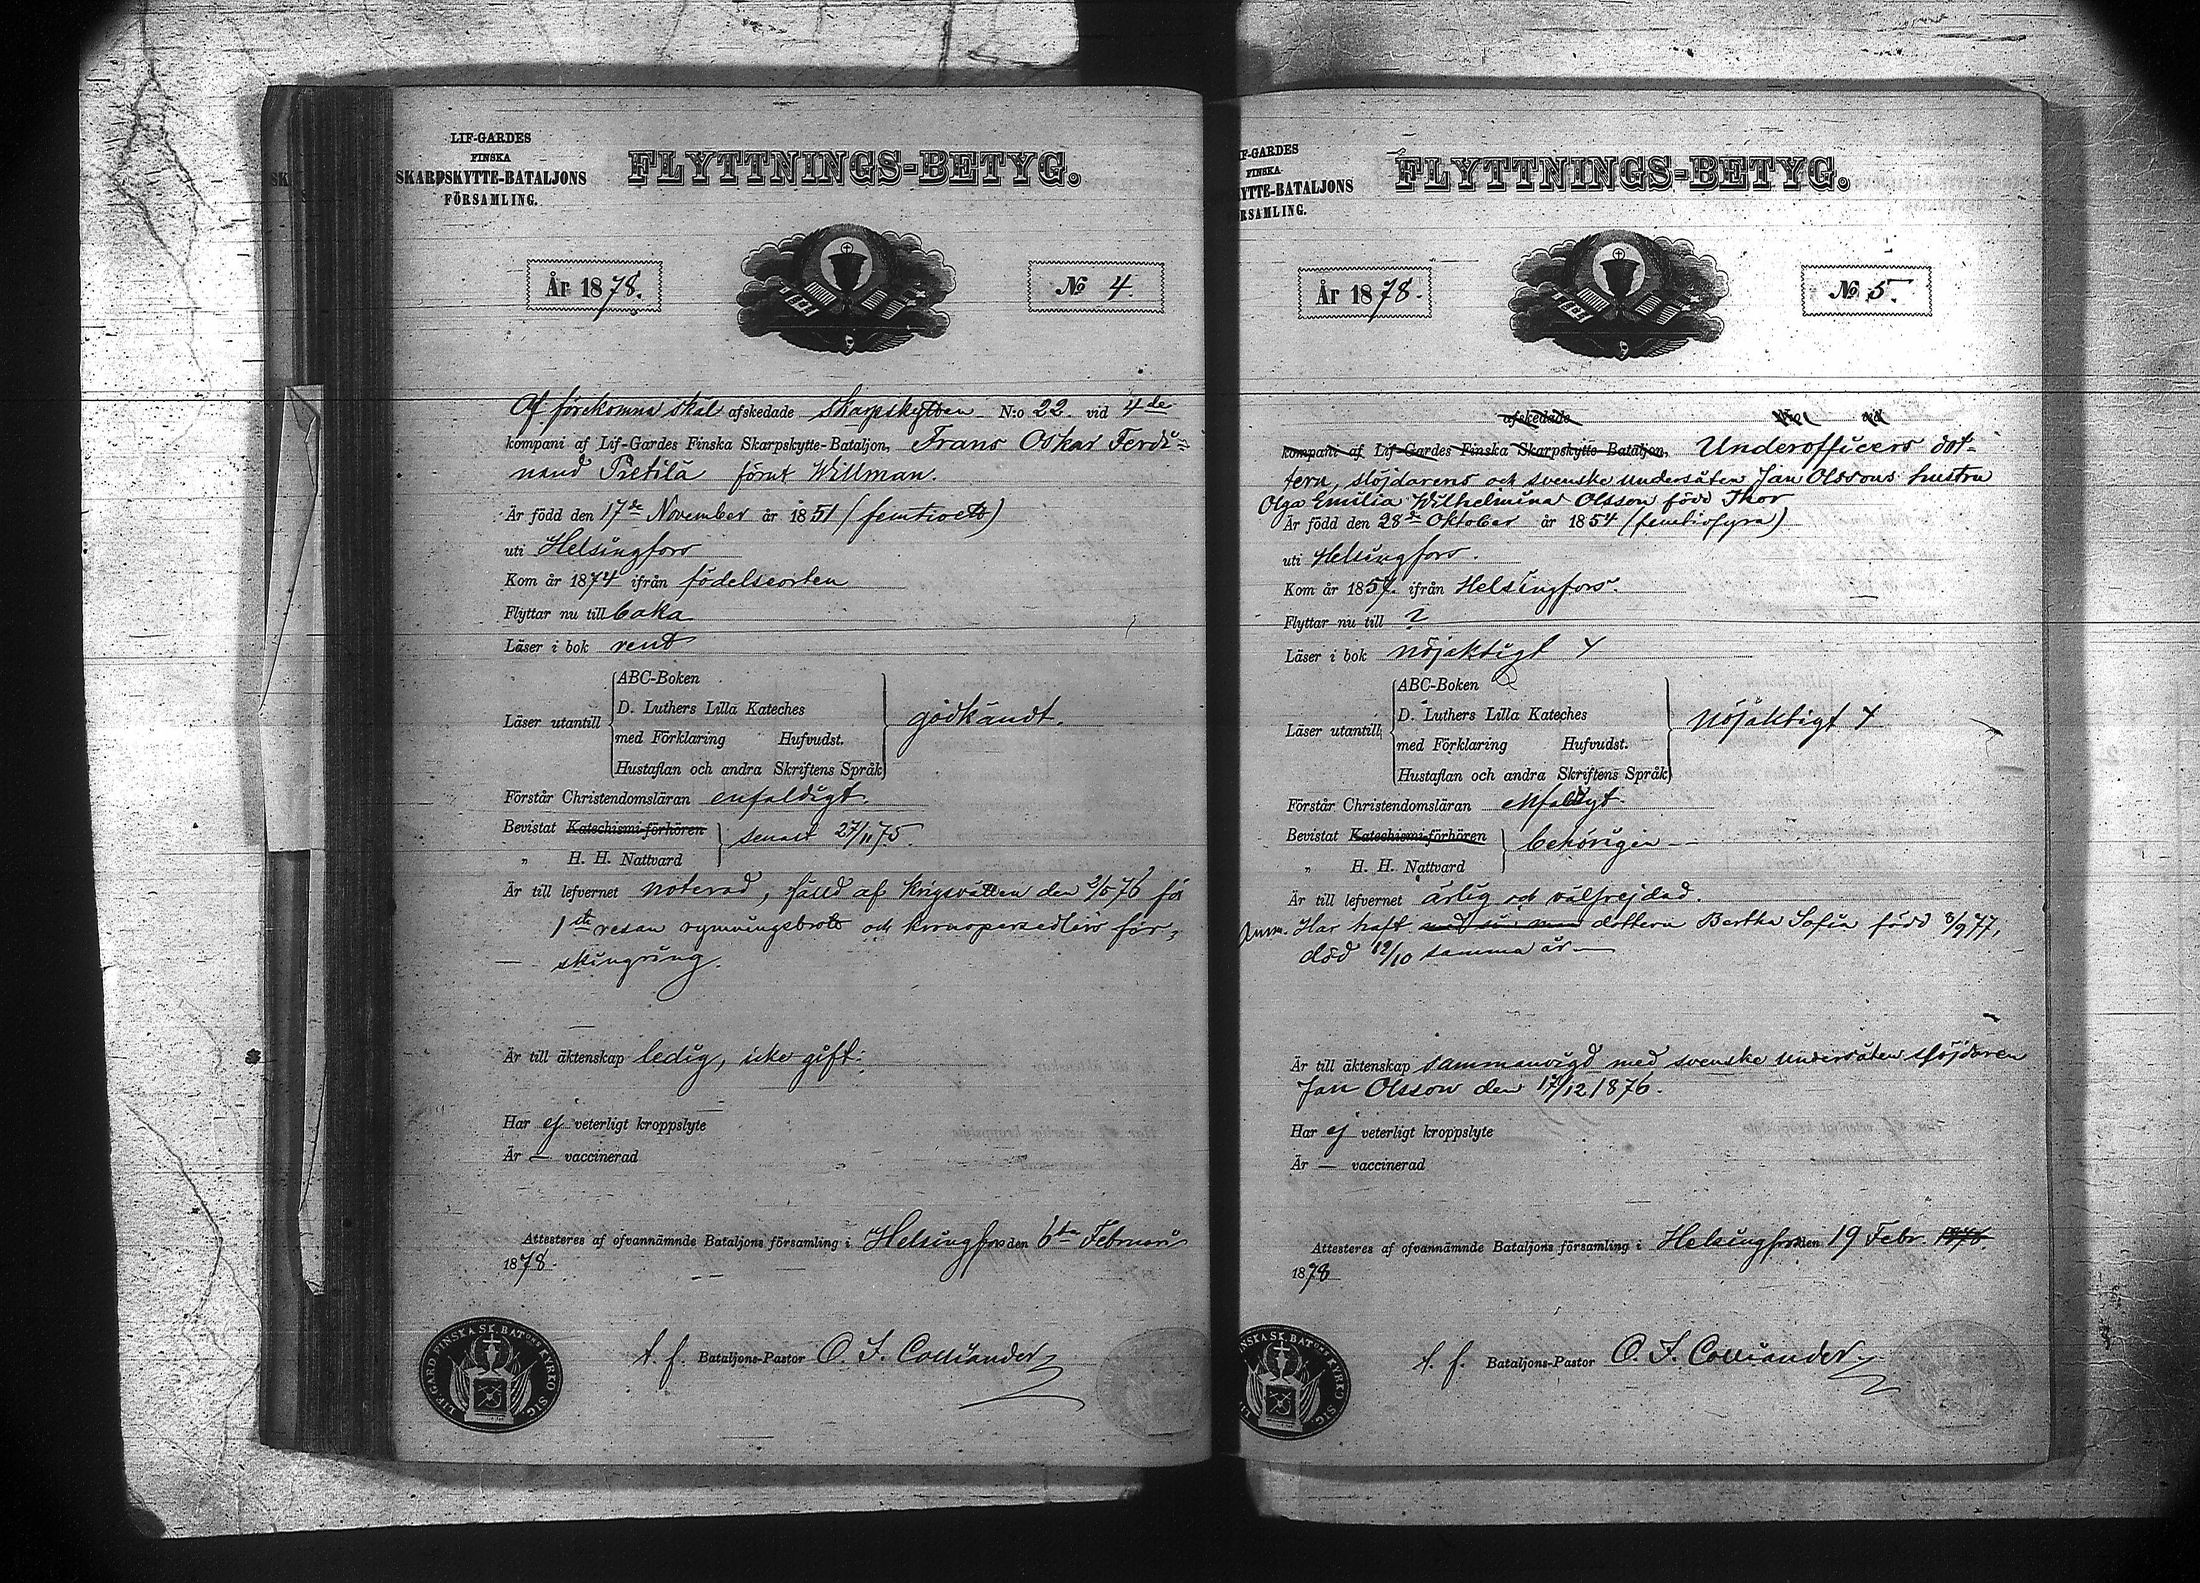 LIF-GARDES
FINSKA
SKARPSKYTTE-BATALJONS
FÖRSAMLING.
FLYTTNINGS-BETYG.
År 1878.
No 4.
Af förekomna skäl afskedade Skarpskytten N:o 22 vid 4de
kompani af Lif-Gardes Finska Skarpskytte-Bataljon, Frans Oskar Ferdi=
nand Pietilä förut Willman.
Är född den 17de November år 1851 (femtioett)
uti Helsingfors
Kom år 1874 ifrån födelseorten
Flyttar nu till baka
Läser i bok rent
Läser utantill
ABC-Boken
D. Luthers Lilla Kateches
med Förklaring Hufvudst.
Hustaflan och andra Skriftens Språk
godkändt.
Förstår Christendomsläran enfaldigt.
Bevistat Katechismi-förhören
„ H. H. Nattvard
senast 27/11 75.
Är till lefvernet noterad, fälld af Krigsrätten den 2/5 76 för
1sta resan rymningsbrott och kronopersedlars för-
skingring.
Är till äktenskap ledig, icke gift.
Har ej veterligt kroppslyte
Är — vaccinerad
Attesteres af ofvannämnde Bataljons församling i Helsingfors den 6ta Februari
1878.
t. f. Bataljons-Pastor O. F. Colliander
LIF-GARD FINSKA SK. BATONS KYRKO SIG
F-GARDES
FINSKA
YTTE-BATALJONS
RSAMLING.
FLYTTNINGS-BETYG.
År 1878.
No 5.
afskedade N:o vid
kompani af Lif-Gardes Finska Skarpskytte-Bataljon, Underofficers dot-
tern, slöjdarens och svenske undersåten Jan Olssons hustru
Olga Emilia Wilhelmina Olsson född Thor
Är född den 28de Oktober år 1854 (femtiofyra)
uti Helsingfors.
Kom år 1857. ifrån Helsingfors.
Flyttar nu till ?
Läser i bok nöjaktigt
Läser utantill
ABC-Boken
D. Luthers Lilla Kateches
med Förklaring Hufvudst.
Hustaflan och andra Skriftens Språk
nöjaktigt
Förstår Christendomsläran enfaldigt.
Bevistat Katechismi-förhören
„ H. H. Nattvard
behörigen —
Är till lefvernet ärlig och välfrejdad.
Anm. Har haft med sin man dottern Bertha Sofia född 3/9 77,
död 19/10 samma år —
Är till äktenskap sammanvigd med svenske undersåten slöjdaren
Jan Olsson den 17/12 1876.
Har ej veterligt kroppslyte
Är — vaccinerad
Attesteres af ofvannämnde Bataljons församling i Helsingfors den 19 Febr. 1876.
1878
t. f. Bataljons-Pastor O. F. Colliander
NSKA SK. BATONS KYRKO SIG